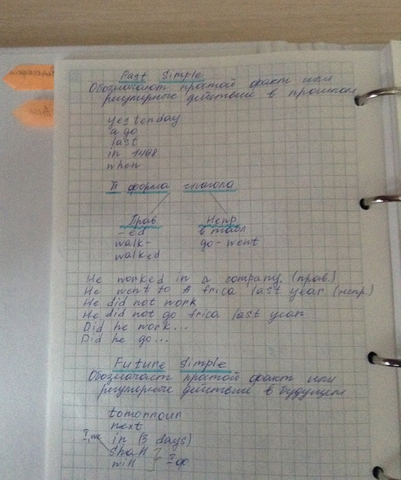 Past Simple
Обозначают простой факт или
регулярные действия в прошлом
yesterday
ago
last
in 1498
when
II форма глагола
Прав. Непр.
-ed в табл
walk- go-went
walked
He worked in a company. (прав.)
He went to Africa last year. (непр)
He did not work
He did not go frica last year
Did he work...
Did he go...
Future Simple
Обозначают простой факт или
регулярные действия в будущем
tomorrow
next
in (5 days)
I, we shall
will } I ф